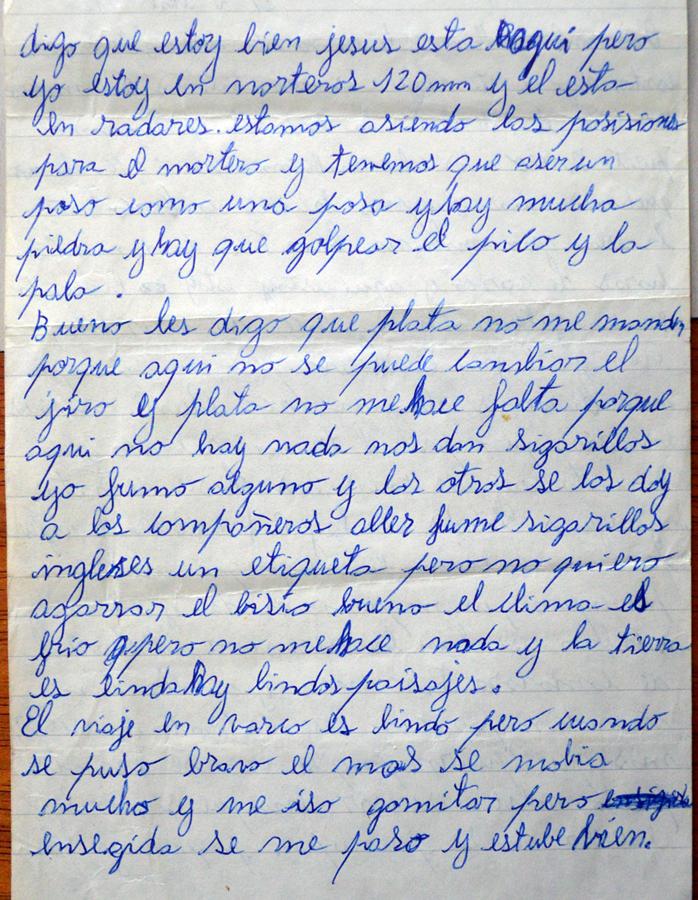 digo que estoy bien jesus esta aqui pero
yo estoy en morteros 120mm y el esta
en radares. estamos asiendo las posisiones
para el mortero y tenemos que aser un
poso como una posa y hay mucha
piedra y hay que golpear el pico y la
pala.
Bueno les digo que plata no me manden
porque aqui no se puede cambiar el
jiro y plata no me hace falta porque
aqui no hay nada nos dan sigarillos
yo fumo alguno y los otros se los doy
a los compañeros aller fume sigarillos
ingleses un etiqueta pero no quiero
agarrar el bisio bueno el clima es
frio pero no me hace nada y la tierra
es linda hay lindos paisajes.
El viaje en varco es lindo pero cuando
se puso bravo el mas se mobia
mucho y me iso gomitar pero
ensegida se me paso y estube bien.